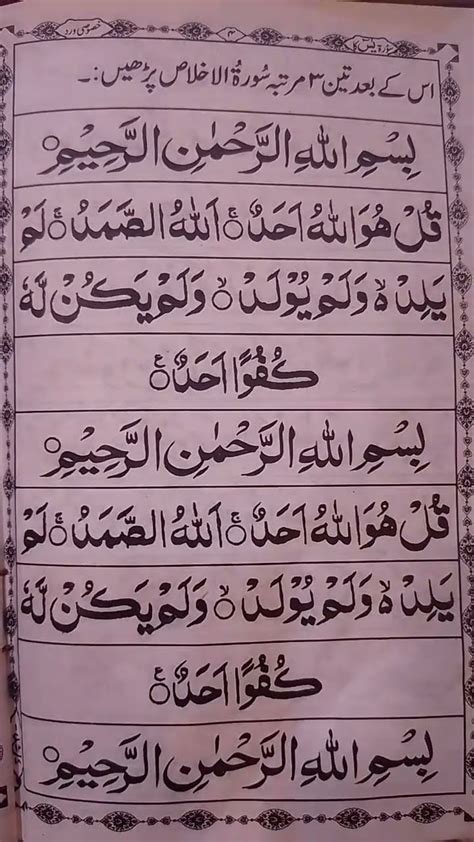 سورۃ یٰسٓ کا ۴ خصوصی ورد
اس کے بعد تین ۳ مرتبہ سُورۃُ الاخلاص پڑھیں:۔
بِسْمِ اللهِ الرَّحْمٰنِ الرَّحِيْمِ○
قُلْ هُوَ اللهُ اَحَدٌ○ۚ اَللهُ الصَّمَدُ○ۚ لَمْ
يَلِدْ ۙ وَلَمْ يُوْلَدْ○ۙ وَلَمْ يَكُنْ لَّهٗ
كُفُوًا اَحَدٌ○ۧ
بِسْمِ اللهِ الرَّحْمٰنِ الرَّحِيْمِ○
قُلْ هُوَ اللهُ اَحَدٌ○ۚ اَللهُ الصَّمَدُ○ۚ لَمْ
يَلِدْ ۙ وَلَمْ يُوْلَدْ○ۙ وَلَمْ يَكُنْ لَّهٗ
كُفُوًا اَحَدٌ○ۧ
بِسْمِ اللهِ الرَّحْمٰنِ الرَّحِيْمِ○